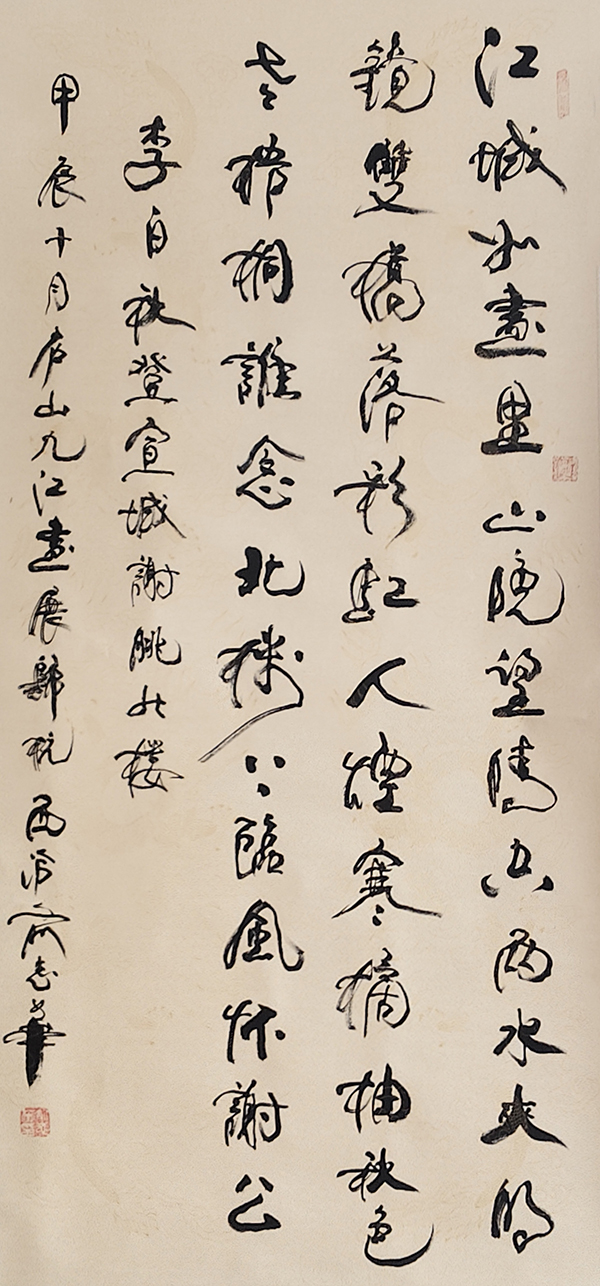 江城如畫里山晚望晴空兩水夾明
鏡雙橋落彩虹人煙寒橘柚秋色
老梧桐誰念北樓上臨風怀謝公
李白秋登宣城謝眺北楼
甲辰十月庐山九江畫展歸杭西泠俞志華